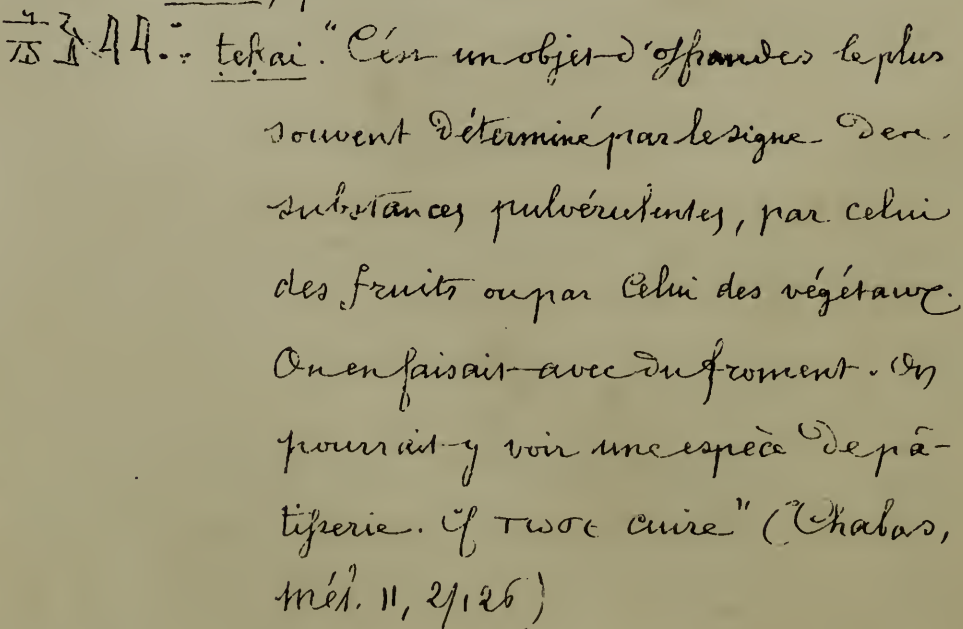 tekai. "C'est un objet d'offrandes le plus
souvent déterminé par le signe des
substances pulvérulentes, par celui
des fruits ou par celui des végétaux.
On en faisait avec du froment. On
pourrait y voir une espèce de pâ-
tisserie. Cf cuire" (Chabas,
Mél. II, 2/126)